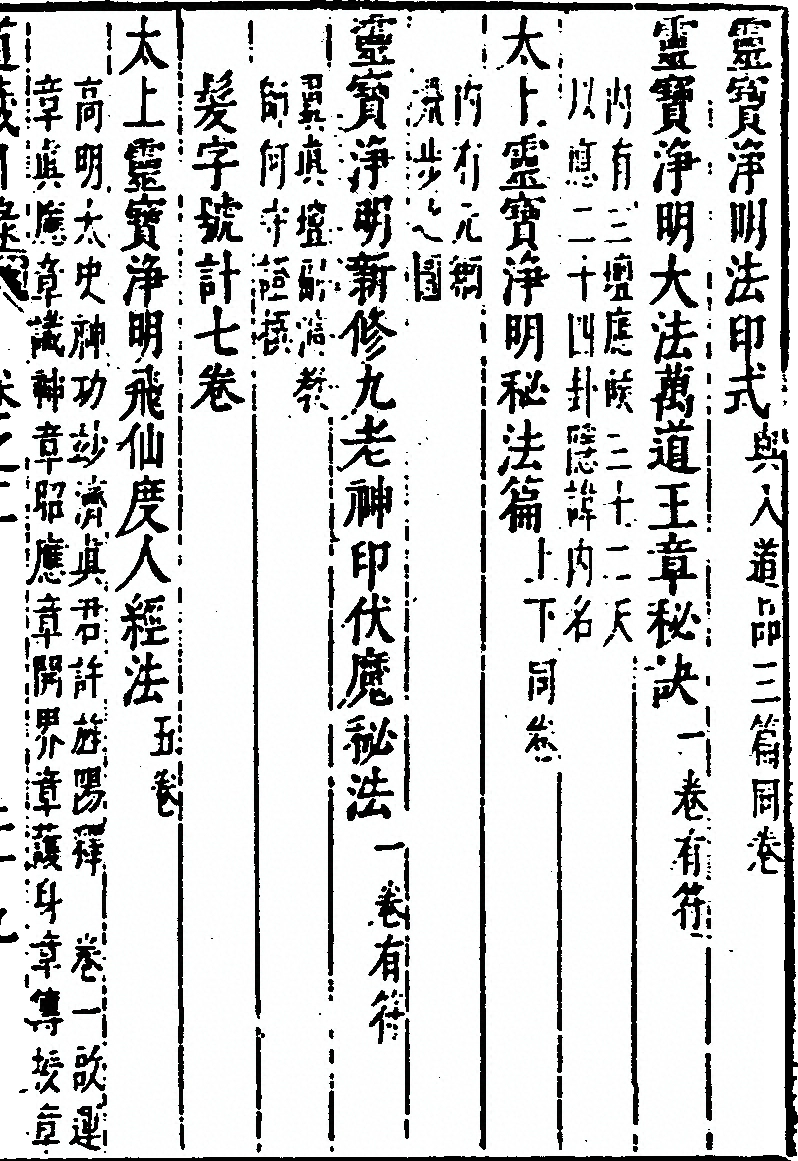 靈寶淨明法印式 與入道品三篇同卷
靈寶淨明大法萬道玉章秘訣 一卷有符
內有三壇應候三十二天
以應二十四卦隱諱內名
太上靈寶淨明秘法篇 上下同卷
內有元綱
飛步之圖
靈寶淨明新修九老神印伏魔秘法 一卷有符
翼真壇副演教
師何守證撰
髮字號計七卷
太上靈寶淨明飛仙度人經法 五卷
高明太史神功妙濟真君許旌陽釋 卷一啟運
章真應章議神章昭應章開界章護身章傳授章
道藏目錄 卷之二 二十九